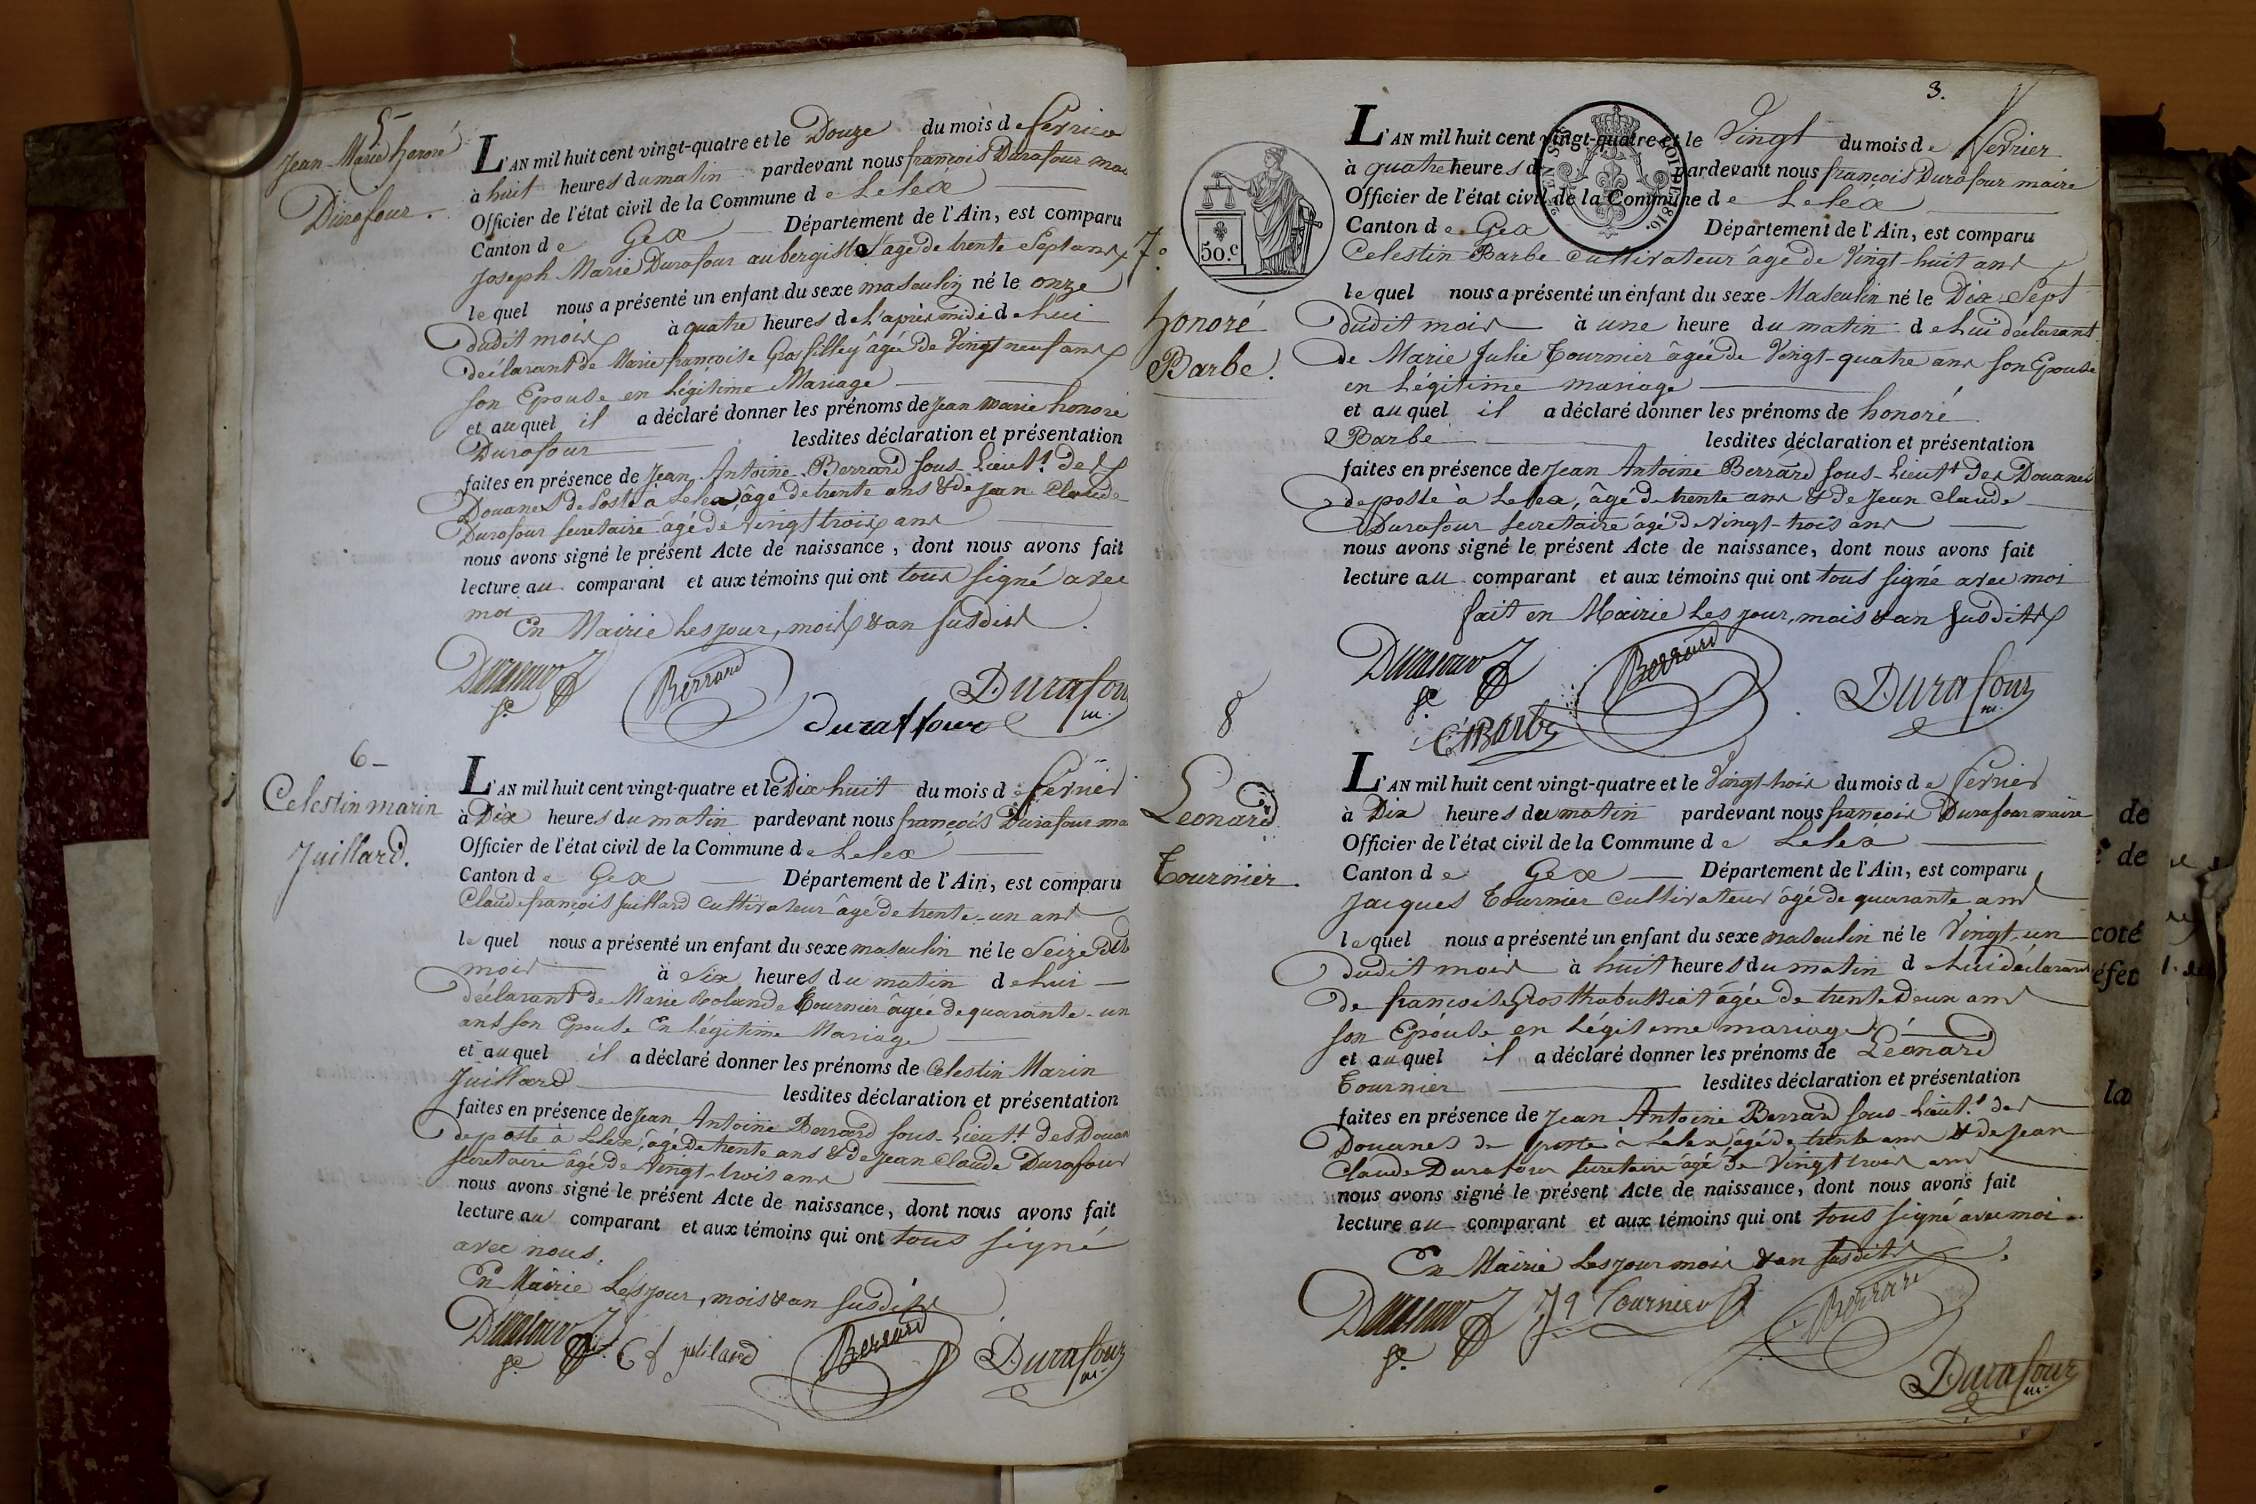 5
Jean-Marie honoré
Durafour.
L'AN mil huit cent vingt-quatre et le Douze du mois de fevrier
à huit heures du matin pardevant nous françois Durafour mai
Officier de l'état civil de la Commune de Lelex
Canton de Gex Département de l'Ain, est comparu
Joseph Marie Durafour aubergiste âgé de trente Sept ans
lequel nous a présenté un enfant du sexe masculin né le onze
dudit mois à quatre heures de L'après midi de Lui
déclarant de Marie françoise Grosfilley âgée de Vingt neuf ans
son Epouse en Légitime Mariage
et auquel il a déclaré donner les prénoms de Jean marie honoré
Durafour lesdites déclaration et présentation
faites en présence de Jean Antoine Berrard sous-Lieut.t des
Douanes de Poste à Lelex âgé de trente ans & de Jean Claude
Durafour secretaire âgé de vingt trois ans
nous avons signé le présent Acte de naissance, dont nous avons fait
lecture au comparant et aux témoins qui ont tous signé avec
moi
En Mairie Les jour, mois & an susdits
Durafour Berrard Durafour
se. m.
duraffour
6
Celestin marin
Juillard.
L'AN mil huit cent vingt-quatre et le Dix-huit du mois de fevrier
à Dix heures du matin pardevant nous françois Durafour ma
Officier de l'état civil de la Commune de Lelex
Canton de Gex Département de l'Ain, est comparu
Claude françois Juillard cultivateur âgé de trente-un ans
lequel nous a présenté un enfant du sexe masculin né le Seize dud
mois à Six heures du matin de Lui
déclarant de Marie Rolande Tournier âgée de quarante-un
ans son Epouse En Légitime Mariage
et auquel il a déclaré donner les prénoms de Celestin Marin
Juillard lesdites déclaration et présentation
faites en présence de Jean Antoine Berrard sous-Lieut.t des Douan
de poste à Lelex, âgé de trente ans & de Jean Claude Durafour
secretaire âgé de Vingt-trois ans
nous avons signé le présent Acte de naissance, dont nous avons fait
lecture au comparant et aux témoins qui ont tous signé
avec nous.
En Mairie Les jour, mois & an susdits
Durafour C f julilard Berrard Durafour
se. m.
3.
50.c
7.
honoré
Barbe.
L'AN mil huit cent vingt-quatre et le Vingt du mois de fevrier
à quatre heures d pardevant nous françois Durafour maire
Officier de l'état civil de la Commune de Lelex
Canton de Gex Département de l'Ain, est comparu
Celestin Barbe cultivateur âgé de Vingt-huit ans
lequel nous a présenté un enfant du sexe Masculin né le Dix-Sept
dudit mois à une heure du matin de Lui déclarant
de Marie Julie Tournier âgée de Vingt-quatre ans son Epouse
en Légitime mariage
et auquel il a déclaré donner les prénoms de honoré
Barbe lesdites déclaration et présentation
faites en présence de Jean Antoine Berrard sous-Lieut.t des Douanes
de poste à Lelex, âgé de trente ans & de Jean Claude
Durafour secretaire âgé de Vingt-trois ans
nous avons signé le présent Acte de naissance, dont nous avons fait
lecture au comparant et aux témoins qui ont tous signé avec moi
fait en Mairie Les jour, mois & an susdits
Durafour Berrard Durafour
se. m.
C Barbe
8
Leonard
Tournier.
L'AN mil huit cent vingt-quatre et le Vingt-trois du mois de fevrier
à Dix heures du matin pardevant nous françois Durafour maire
Officier de l'état civil de la Commune de Lelex
Canton de Gex Département de l'Ain, est comparu
Jacques Tournier cultivateur âgé de quarante ans
lequel nous a présenté un enfant du sexe masculin né le Vingt-un
dudit mois à huit heures du matin de Lui déclarant
de françoise Gros thabussiat âgée de trente Deux ans
son Epouse en Légitime mariage
et auquel il a déclaré donner les prénoms de Léonard
Tournier lesdites déclaration et présentation
faites en présence de Jean Antoine Berrard sous-Lieut.t des
Douanes de poste à Lelex âgé de trente ans & de Jean
Claude Durafour secretaire âgé de Vingt trois ans
nous avons signé le présent Acte de naissance, dont nous avons fait
lecture au comparant et aux témoins qui ont tous signé avec moi
En Mairie Les jour mois & an susdits
Durafour Jq Tournier Berrard
se.
Durafour
m.
de
de
coté
éfet
la